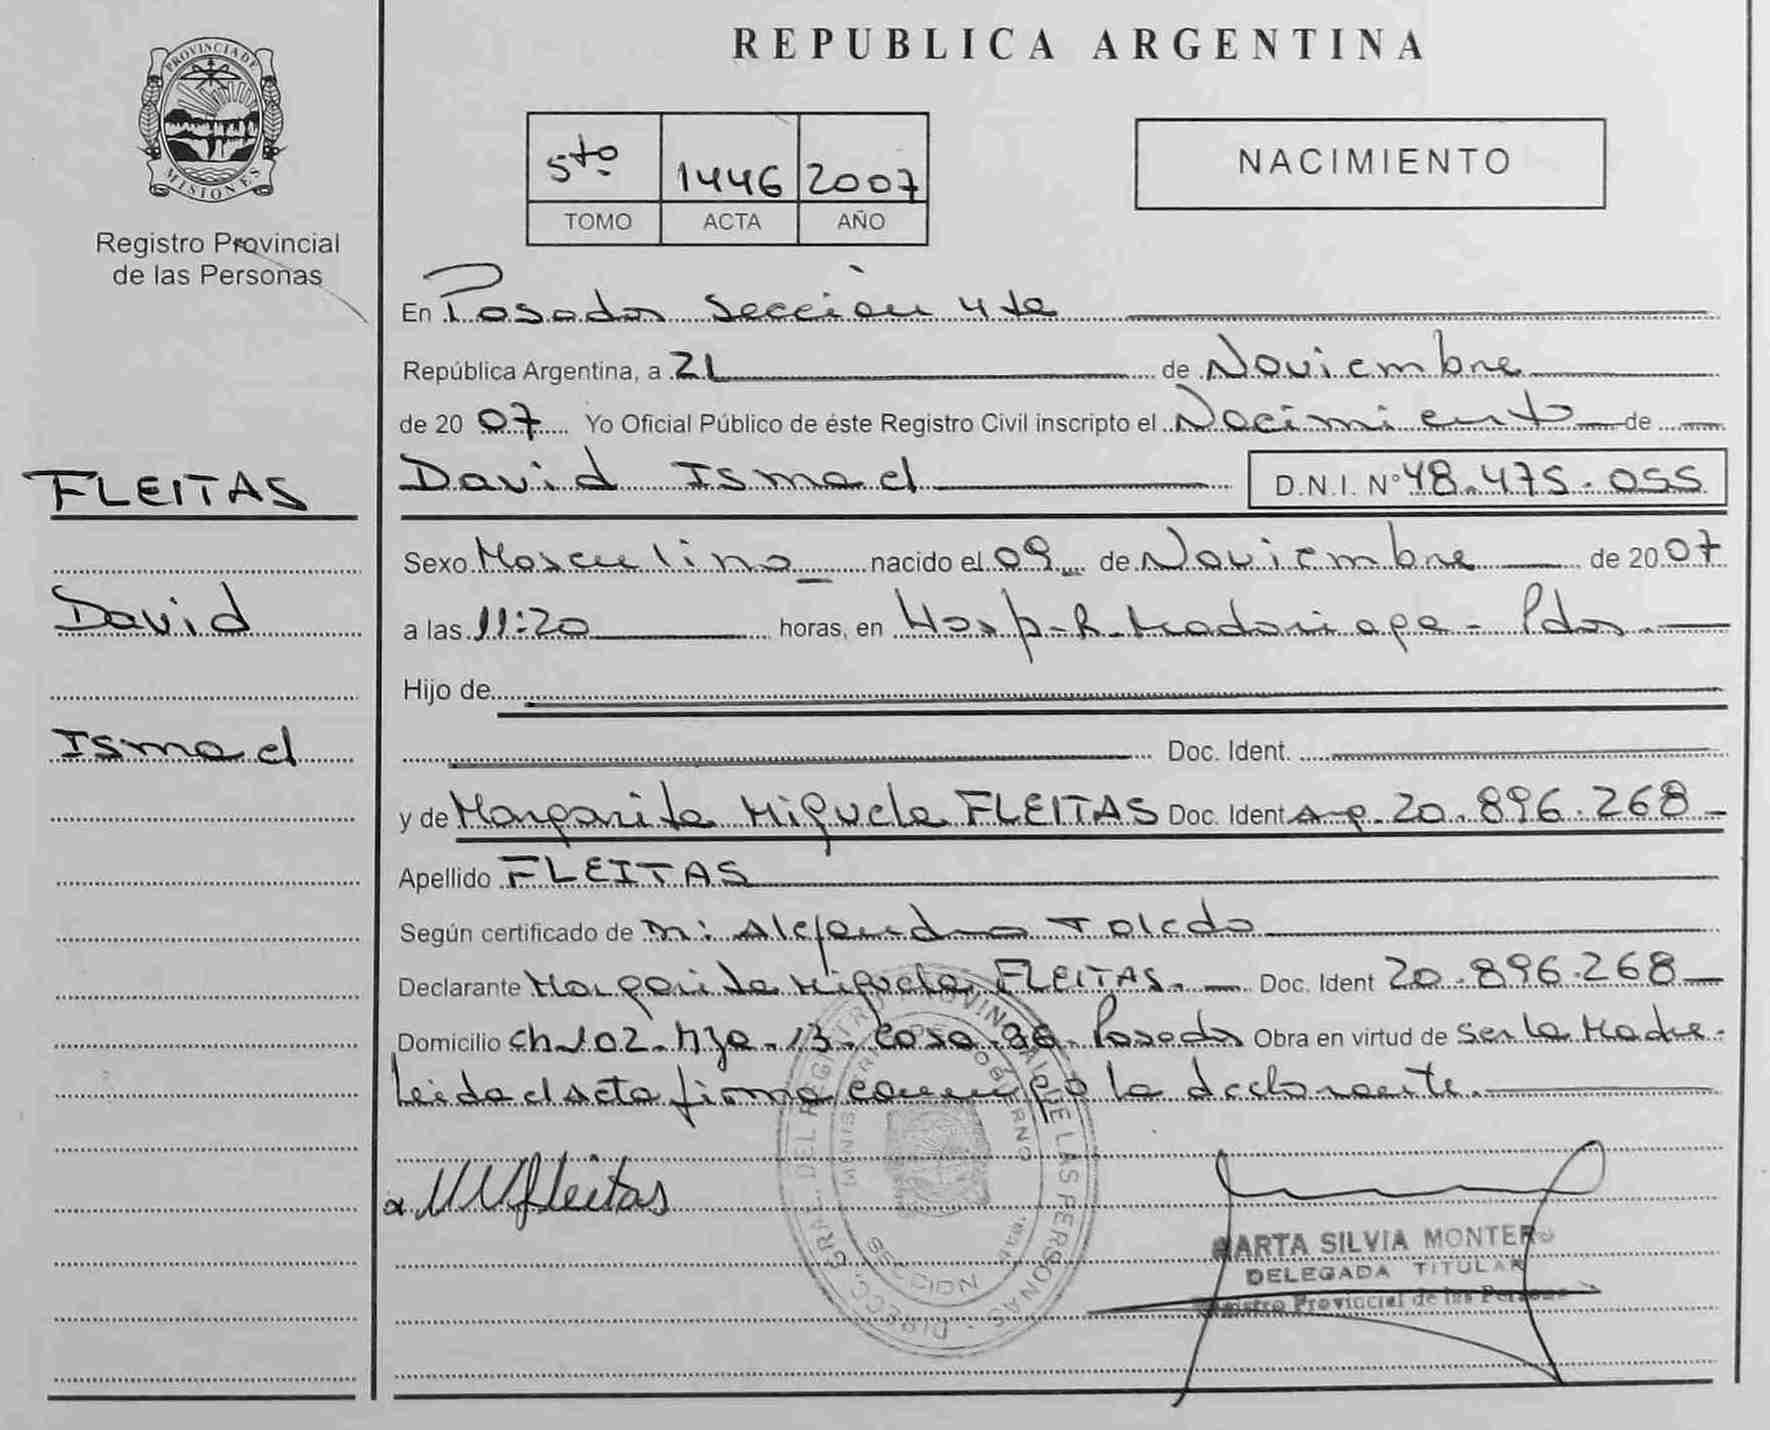 PROVINCIA DE
MISIONES
Registro Provincial
de las Personas
FLEITAS
David
Ismael
REPUBLICA ARGENTINA
5to 1446 2007
TOMO ACTA AÑO
NACIMIENTO
En Posadas Sección 4ta
República Argentina, a 21 de Noviembre
de 2007 Yo Oficial Público de éste Registro Civil inscripto el Nacimiento de
David Ismael D.N.I. N° 48.475.055
Sexo Masculino nacido el 09 de Noviembre de 2007
a las 11:20 horas, en Hosp. R. Madariaga - Pdas.
Hijo de
Doc. Ident.
y de Margarita Miguela FLEITAS Doc. Ident 20.896.268
Apellido FLEITAS
Según certificado de Alejandro Toledo
Declarante Margarita Miguela FLEITAS. Doc. Ident 20.896.268
Domicilio Ch 102. Mza. 13. Casa. 36. Posadas Obra en virtud de ser la Madre.
Leida el acta firma conmigo la declarante.
x MM fleitas
DIRECC. GRAL. DEL REGISTRO PROVINCIAL DE LAS PERSONAS
GOBIERNO
MARTA SILVIA MONTERO
DELEGADA TITULAR
Registro Provincial de las Personas